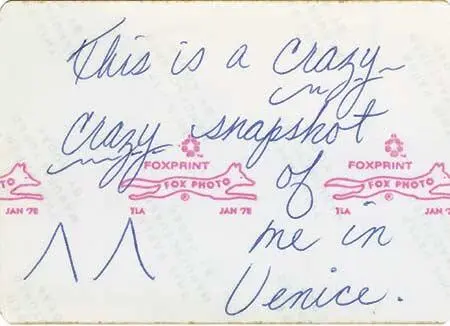 This is a crazy
crazy snapshot
of
me in
Venice.
FOXPRINT
FOX PHOTO
®
TLA JAN '78
FOXPRINT
FOX PHOTO
®
TLA JAN '7
TO
JAN '78